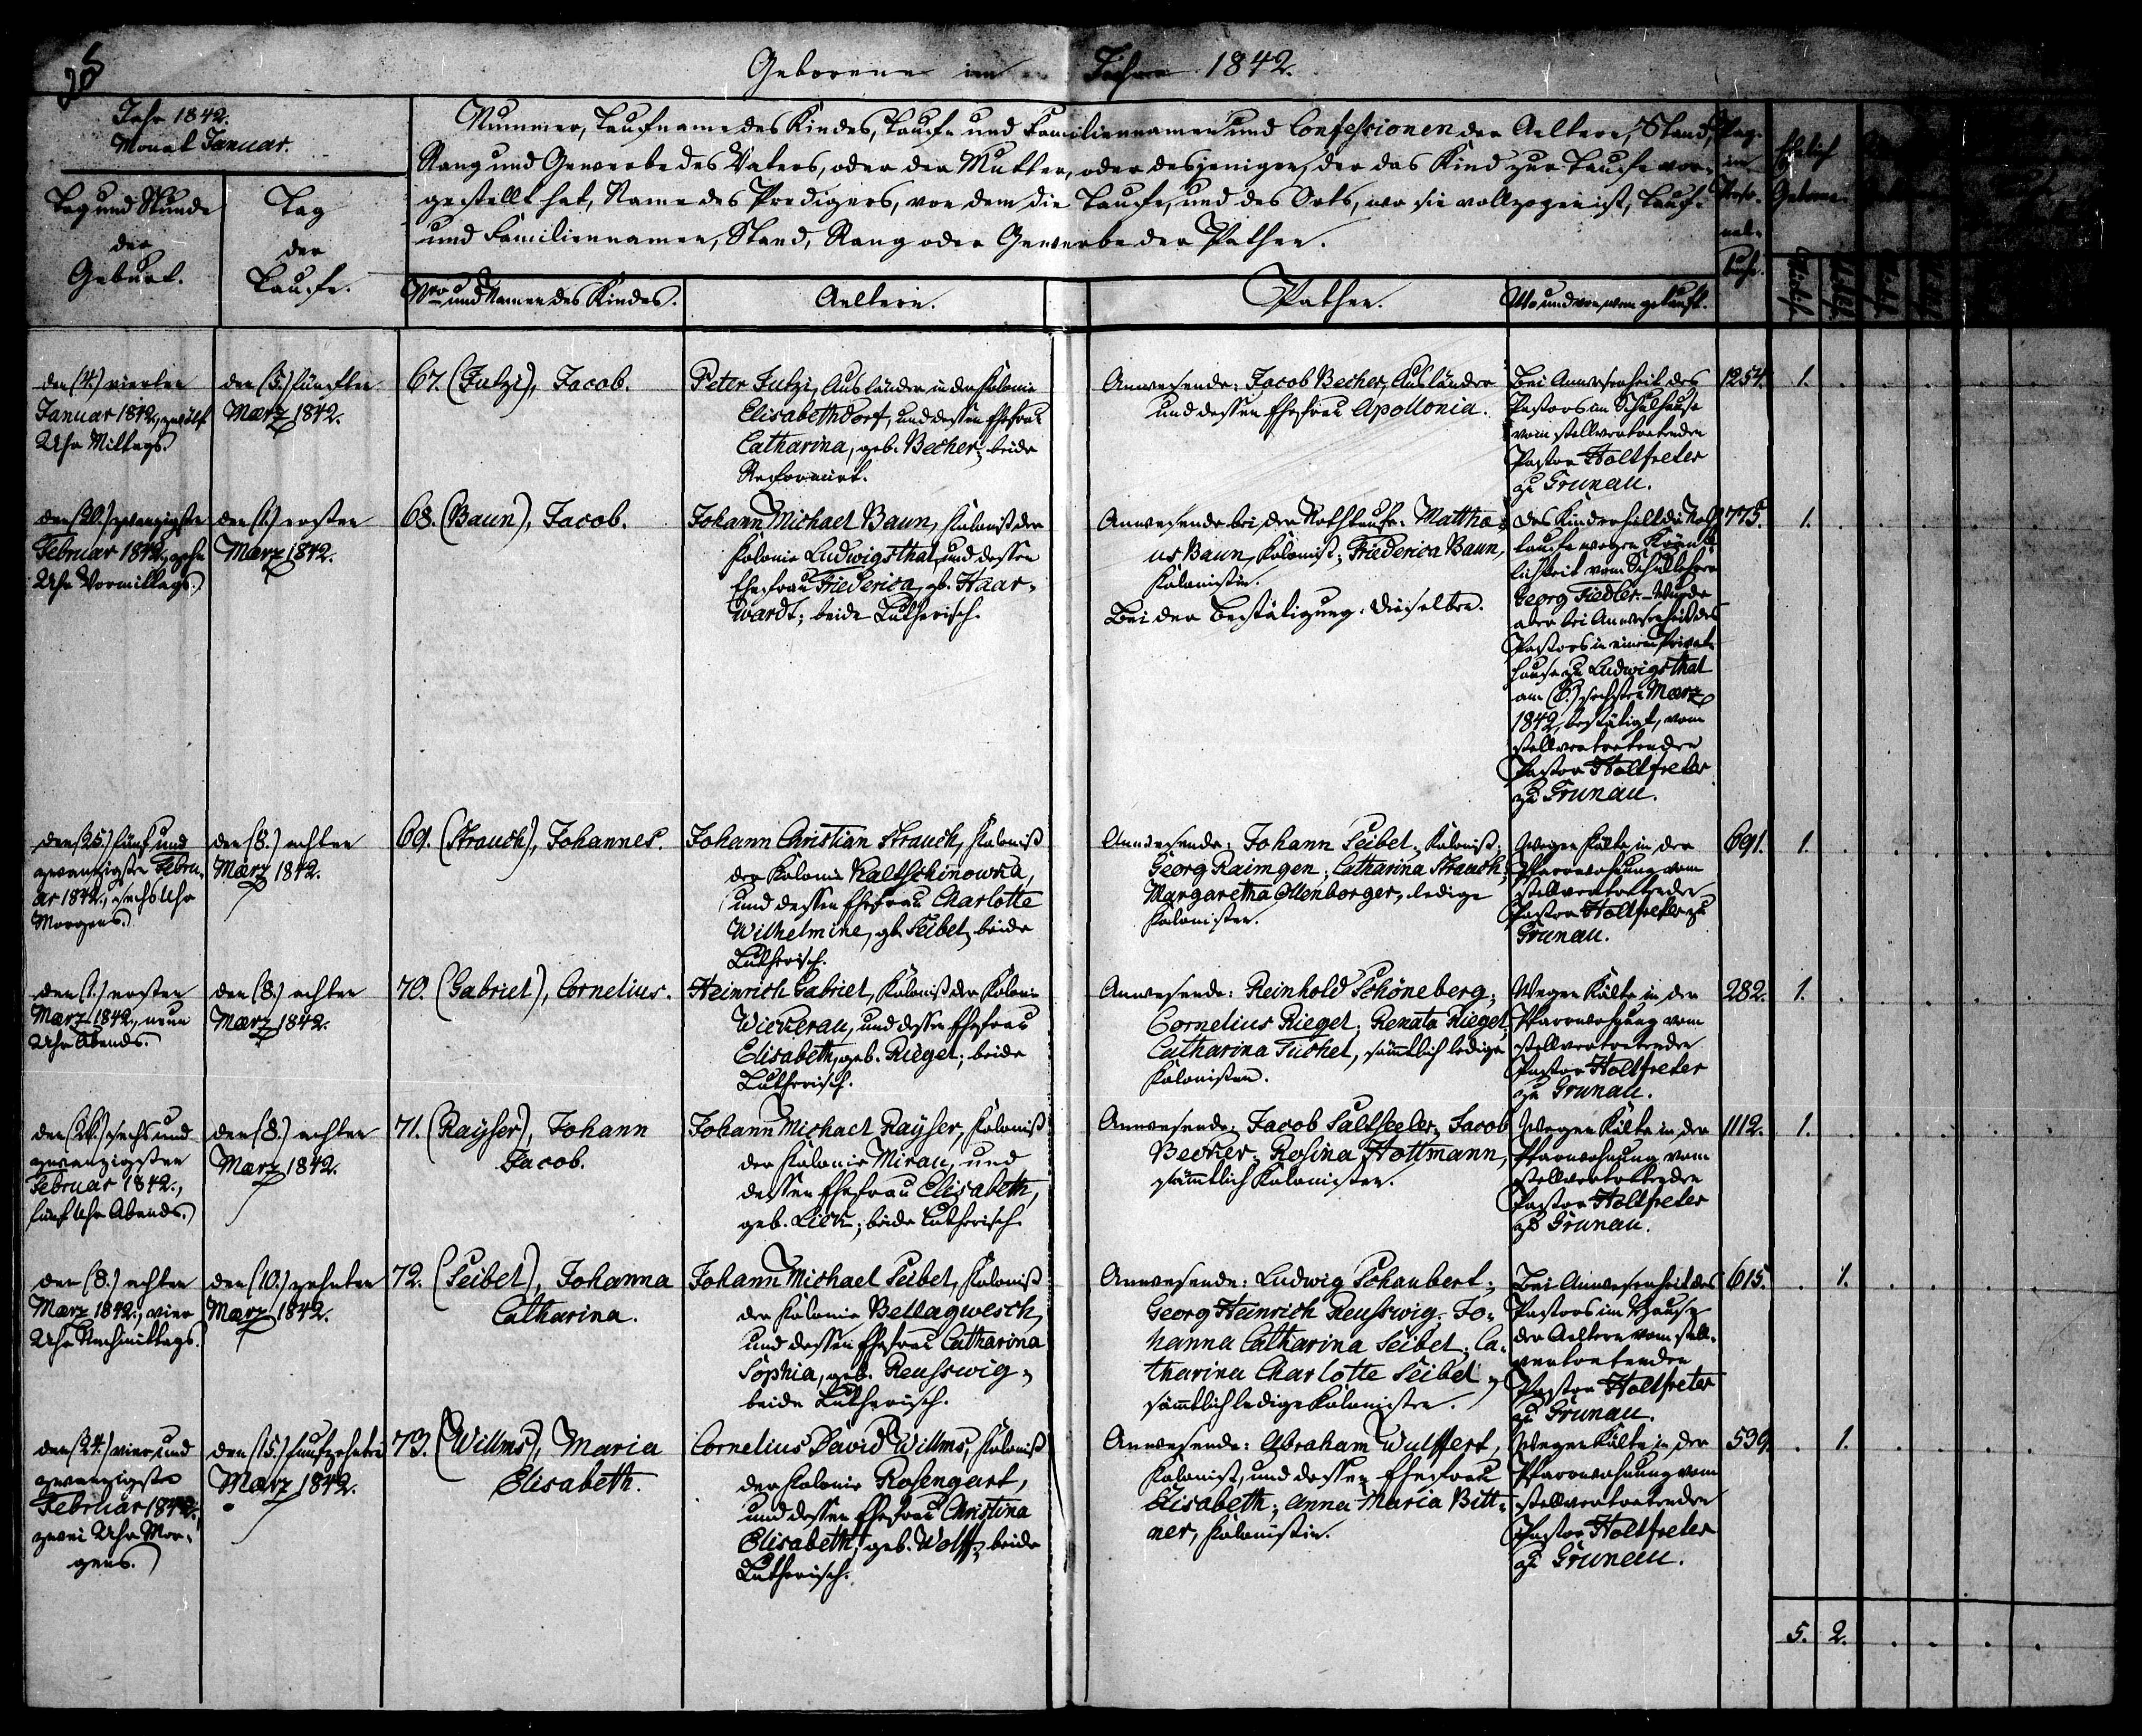 Geborene im Jahre 1842.
Jahr 1842.
Monat Januar.
Tag und Stunde
der
Geburt.
Tag
der
Taufe.
Nummer, Taufname des Kindes, Tauf- und Familiennamen und Confessionen der Aeltern, Stand,
Rang und Gewerbe des Vaters, oder der Mutter, oder desjenigen, der das Kind zur Taufe vor-
gestellt hat, Name des Predigers, von dem die Taufe, und des Orts, wo sie vollzogen ist, Tauf-
und Familiennamen, Stand, Rang oder Gewerbe der Pathen.
Nro und Namen des Kindes.
Aeltern.
Pathen.
Wo und von wem getauft.
Pag.
in
Perso-
nal-
buch.
Ehelich
Geborene
den (4.) vierten
Januar 1842, zwölf
Uhr Mittags.
den (5.) fünften
März 1842.
67. (Jutzi), Jacob.
Peter Jutzi, Ausländer in der Kolonie
Elisabethdorf, und dessen Ehefrau
Catharina, geb. Becher; beide
Reformirt.
Anwesende: Jacob Becher, Ausländer
und dessen Ehefrau Apollonia.
Bei Anwesenheit des
Pastors im Schulhause
vom stellvertretenden
Pastor Holtfreter
zu Grunau.
1254.
1.
den (20.) zwanzigsten
Februar 1842, zehn
Uhr Vormittags.
den (1.) ersten
März 1842.
68. (Baun), Jacob.
Johann Michael Baun, Kolonist der
Kolonie Ludwigsthal, und dessen
Ehefrau Friederica, gb. Haar-
wardt; beide Lutherisch.
Anwesende bei der Nothtaufe: Matthä-
us Baun, Kolonist; Friederica Baun,
Kolonistin.
Bei der Bestätigung: Dieselben.
Das Kind erhielt die Noth-
taufe wegen Kränk-
lichkeit vom Schullehrer
Georg Fiedler. Wurde
aber bei Anwesenheit des
Pastors in einem Privat-
hause zu Ludwigsthal
am (6.) sechsten März
1842, bestätigt, vom
stellvertretenden
Pastor Holtfreter
zu Grunau.
775.
1.
den (25.) fünf und
zwanzigsten Febru-
ar 1842, sechs Uhr
Morgens.
den (8.) achten
März 1842.
69. (Strauch), Johannes.
Johann Christian Strauch, Kolonist
der Kolonie Kaltschinowka,
und dessen Ehefrau Charlotte
Wilhelmine, gb. Seibel; beide
Lutherisch.
Anwesende: Johann Seibel, Kolonist;
Georg Raimgen; Catharina Strauch;
Margaretha Ollenborger, ledige
Kolonisten.
Wegen Kälte in der
Pfarrwohnung vom
stellvertretenden
Pastor Holtfreter zu
Grunau.
691.
1.
den (1.) ersten
März 1842, neun
Uhr Abends.
den (8.) achten
März 1842.
70. (Gabriel), Cornelius.
Heinrich Gabriel, Kolonist der Kolonie
Wickerau, und dessen Ehefrau
Elisabeth, geb. Riegel; beide
Lutherisch.
Anwesende: Reinhold Schöneberg;
Cornelius Riegel; Renata Riegel;
Catharina Tuchel, sämmtlich ledige
Kolonisten.
Wegen Kälte in der
Pfarrwohnung vom
stellvertretenden
Pastor Holtfreter
zu Grunau.
282.
1.
den (26.) sechs und
zwanzigsten
Februar 1842,
fünf Uhr Abends.
den (8.) achten
März 1842.
71. (Rayser), Johann
Jacob.
Johann Michael Rayser, Kolonist
der Kolonie Mirau, und
dessen Ehefrau Elisabeth,
geb. Lieck; beide Lutherisch.
Anwesende: Jacob Saltseeler; Jacob
Becker; Rosina Hottmann,
sämmtlich Kolonisten.
Wegen Kälte in der
Pfarrwohnung vom
stellvertretenden
Pastor Holtfreter
zu Grunau.
1112.
1.
den (8.) achten
März 1842, vier
Uhr Nachmittags.
den (10.) zehnten
März 1842.
72. (Seibel), Johanna
Catharina.
Johann Michael Seibel, Kolonist
der Kolonie Bellagwesch,
und dessen Ehefrau Catharina
Sophia, geb. Reusswig;
beide Lutherisch.
Anwesende: Ludwig Schaubert;
Georg Heinrich Reusswig; Jo-
hanna Catharina Seibel; Ca-
tharina Charlotte Seibel,
sämmtlich ledige Kolonisten.
Bei Anwesenheit des
Pastors im Hause
der Aeltern vom stell-
vertretenden
Pastor Holtfreter
zu Grunau.
615.
1.
den (24.) vier und
zwanzigsten
Februar 1842,
zwei Uhr Mor-
gens.
den (15.) fünfzehnten
März 1842.
73. (Willms), Maria
Elisabeth.
Cornelius David Willms, Kolonist
der Kolonie Rosengart,
und dessen Ehefrau Christina
Elisabeth, geb. Wolff; beide
Lutherisch.
Anwesende: Abraham Wulffert,
Kolonist, und dessen Ehefrau
Elisabeth; Anna Maria Bitt-
ner, Kolonistin.
Wegen Kälte in der
Pfarrwohnung vom
stellvertretenden
Pastor Holtfreter
zu Grunau.
539.
1.
5. 2.